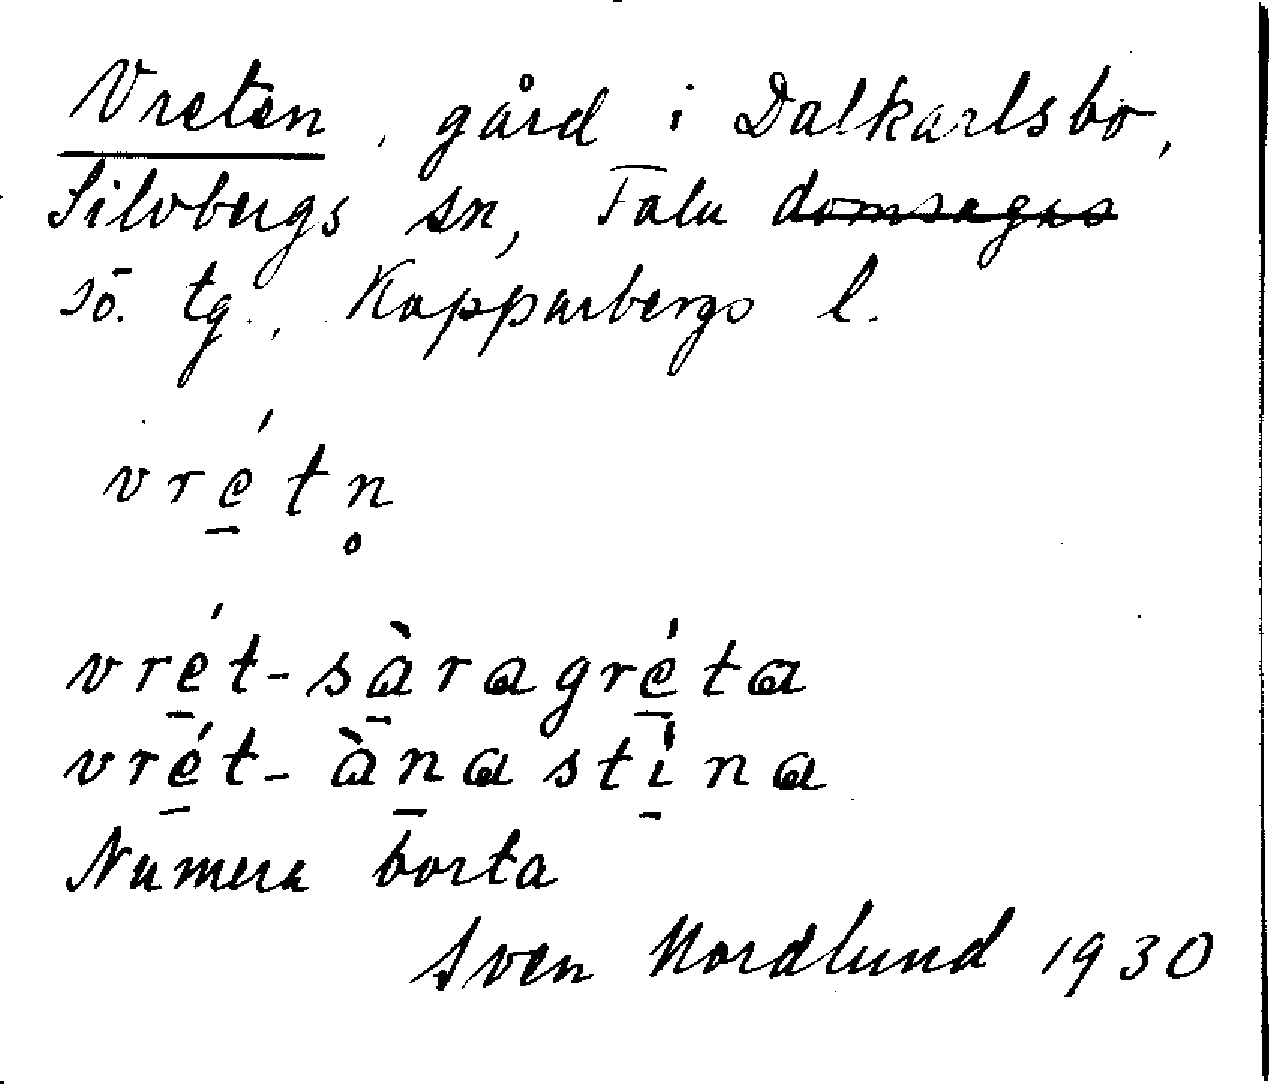 Vreten, gård i Dalkarlsbo,
Silvbergs sn, Falu domsagas
sö. tg., Kopparbergs l.
vré̱tn̥
vré̱t-sà̱ragré̱ta
vré̱t-àṉastí̱na
Numera borta
Sven Nordlund 1930